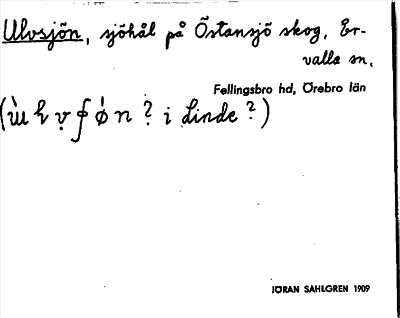 Ulvsjön, sjöhål på Östansjö skog, Er-
valla sn,
Fellingsbro hd, Örebro län
? i Linde ?)
JÖRAN SAHLGREN 1909